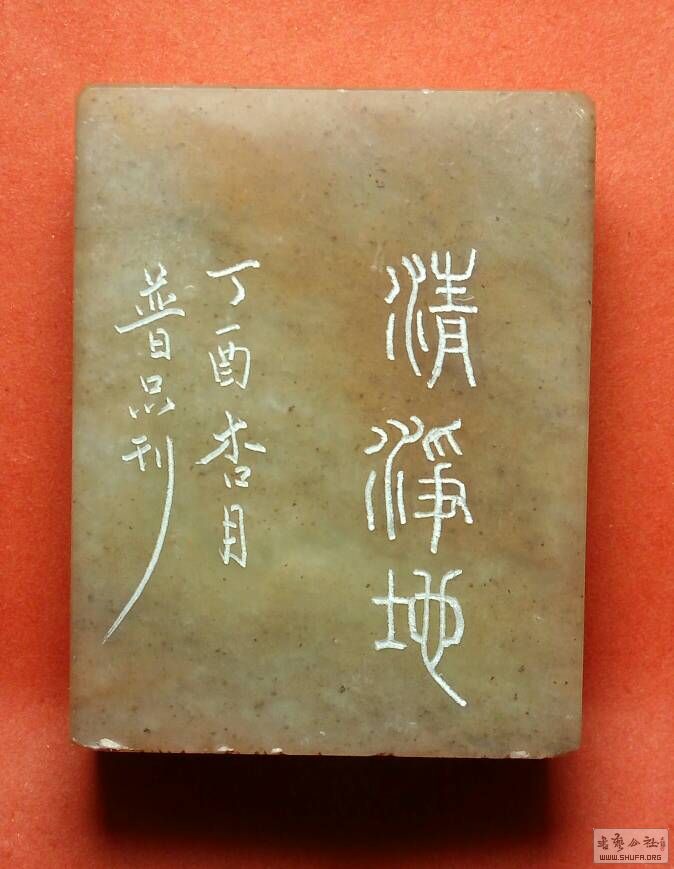 清淨地
丁酉杏月
普品刊
书艺公社
WWW.SHUFA.ORG